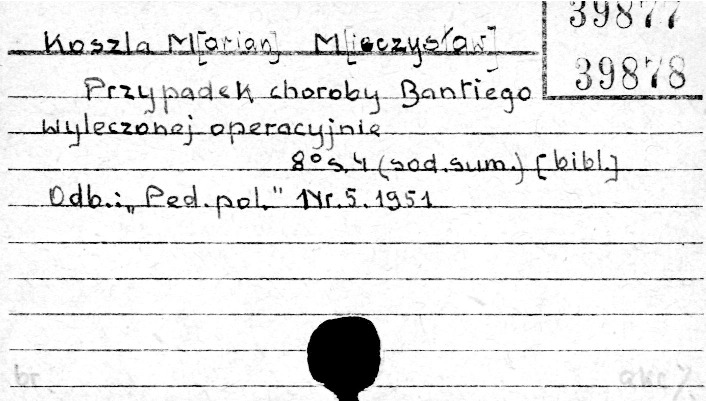 39877
Koszla M[arian] M[ieczysław]
39878
Przypadek choroby Bantiego
wyleczonej operacyjnie
8° s. 4 (sod. sum.) [bibl.]
Odb.: „Ped. pol." Nr. 5. 1951
br.
akc